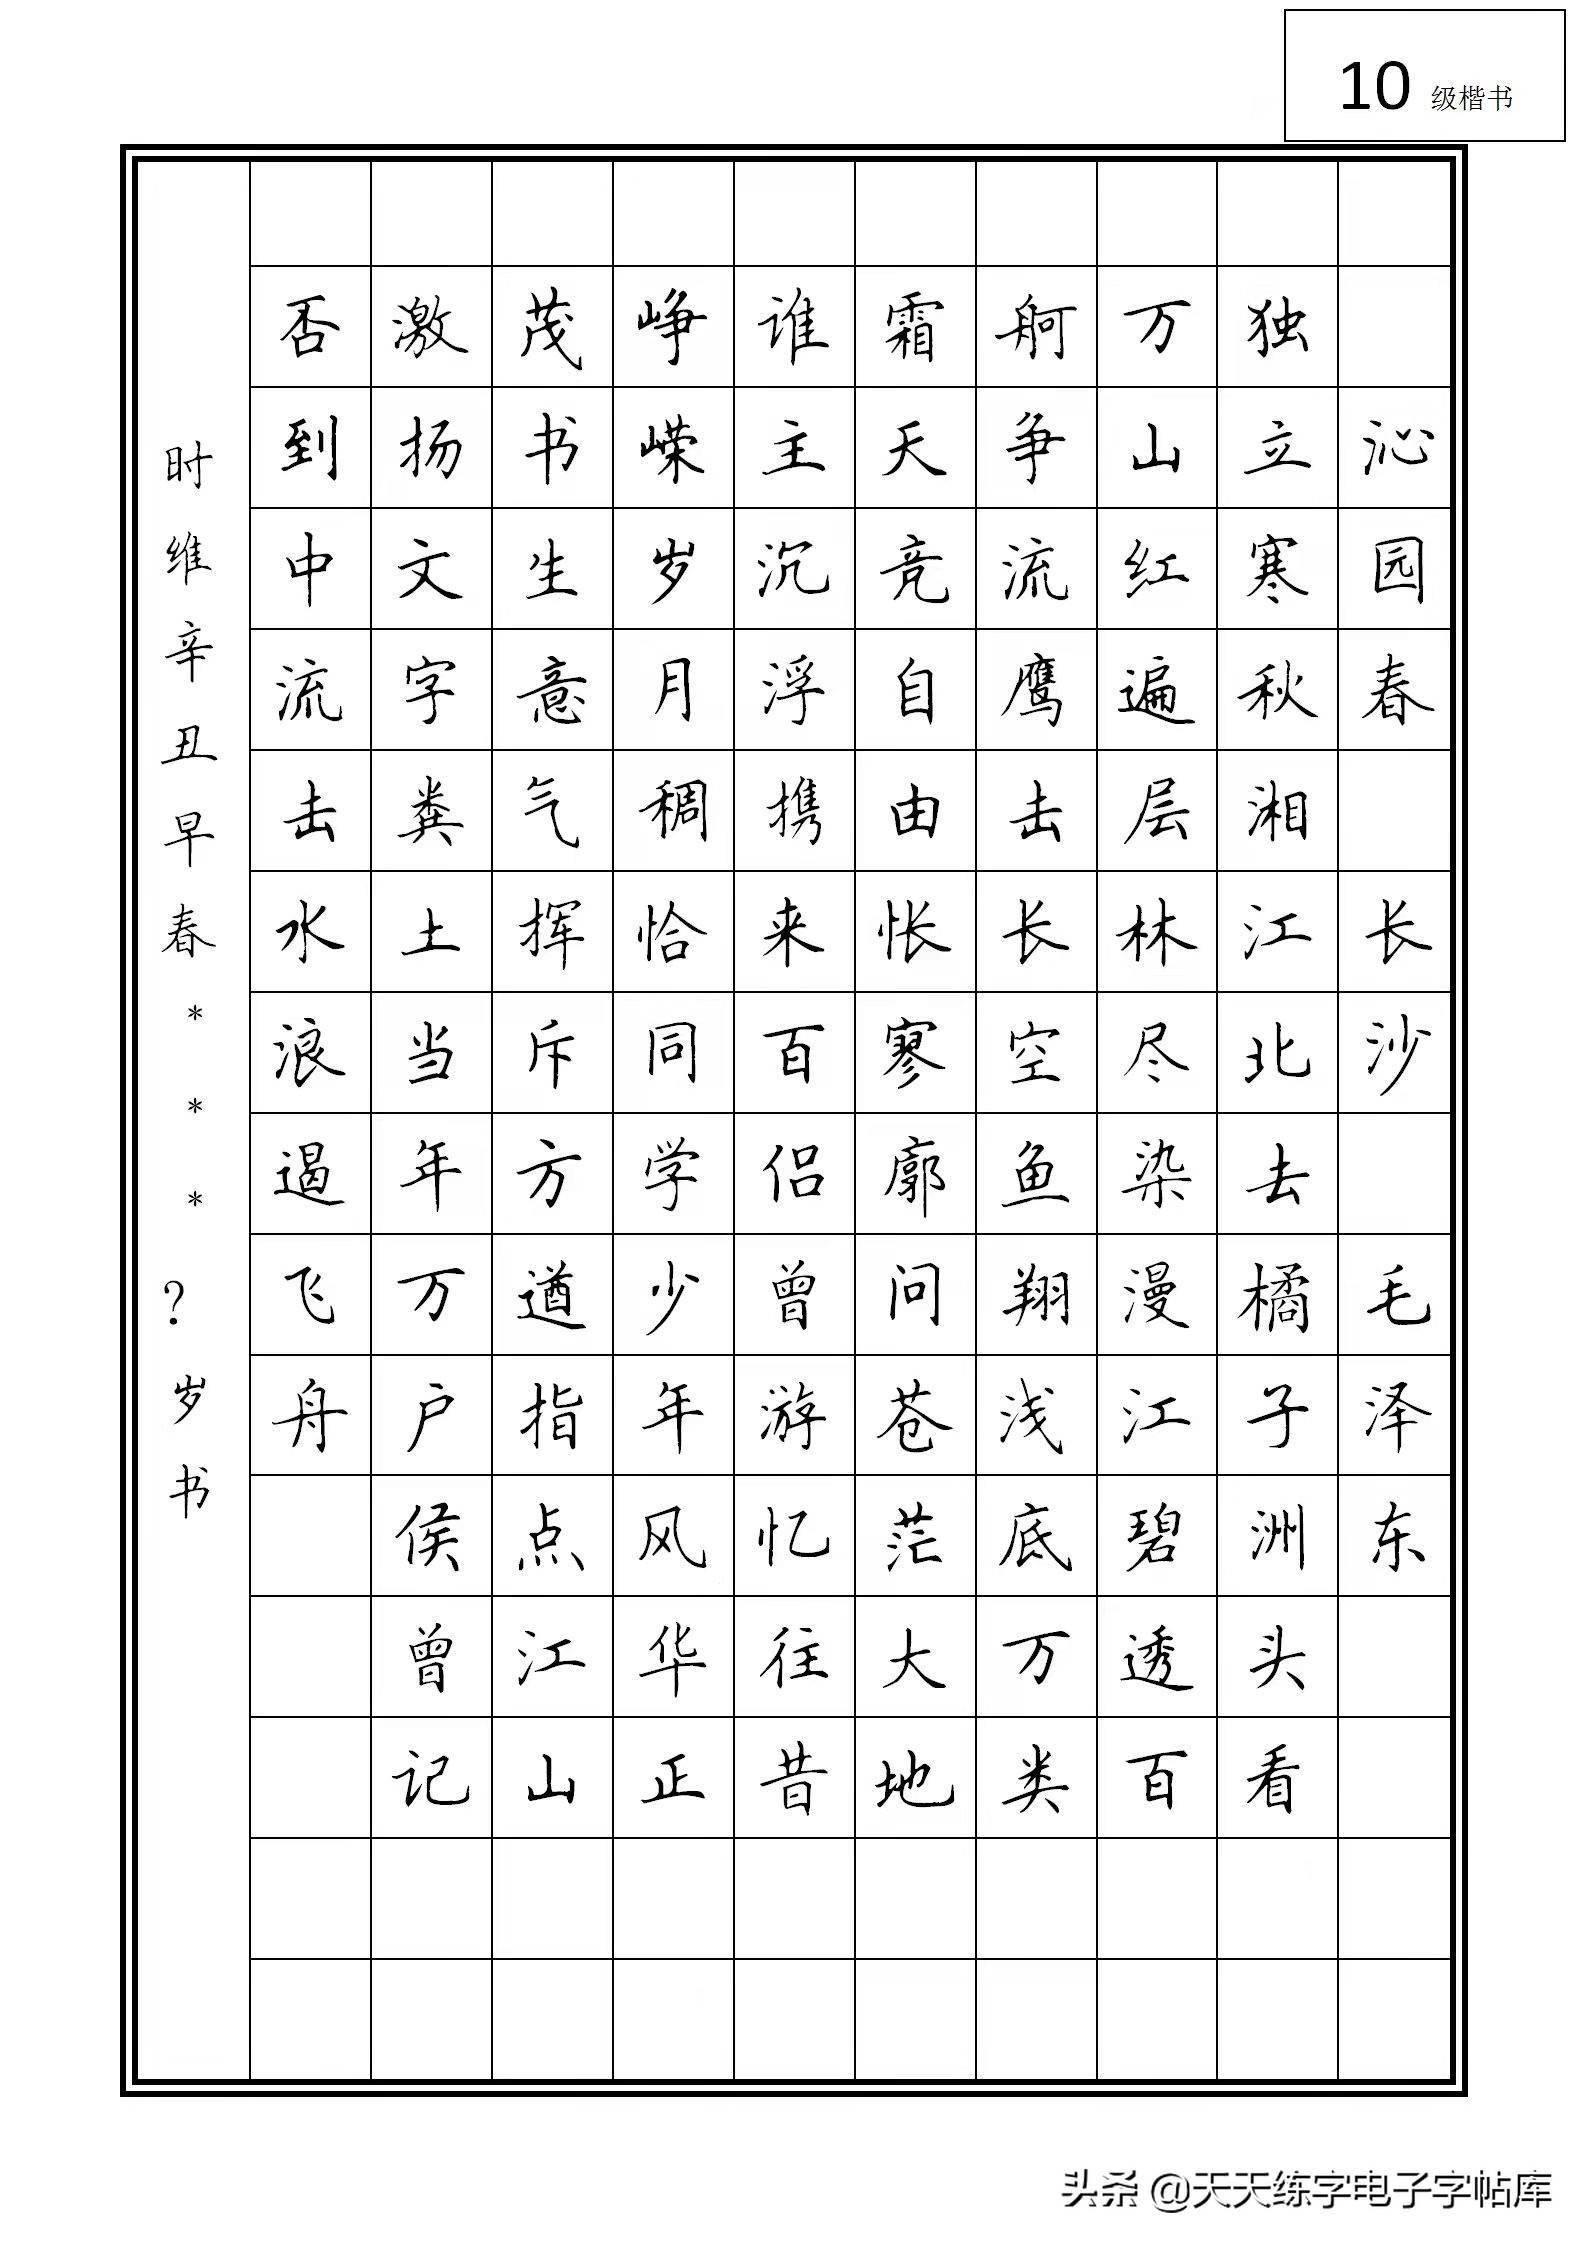 10 级楷书
沁园春 长沙 毛泽东
独立寒秋湘江北去橘子洲头看
万山红遍层林尽染漫江碧透百
舸争流鹰击长空鱼翔浅底万类
霜天竞自由怅寥廓问苍茫大地
谁主沉浮携来百侣曾游忆往昔
峥嵘岁月稠恰同学少年风华正
茂书生意气挥斥方遒指点江山
激扬文字粪土当年万户侯曾记
否到中流击水浪遏飞舟
时维辛丑早春***?岁书
头条 @天天练字电子字帖库